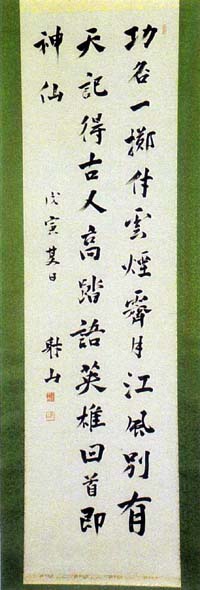 功名一擲付雲煙霽月江風別有
天記得古人高踏語英雄回首即
神仙
戊寅夏日